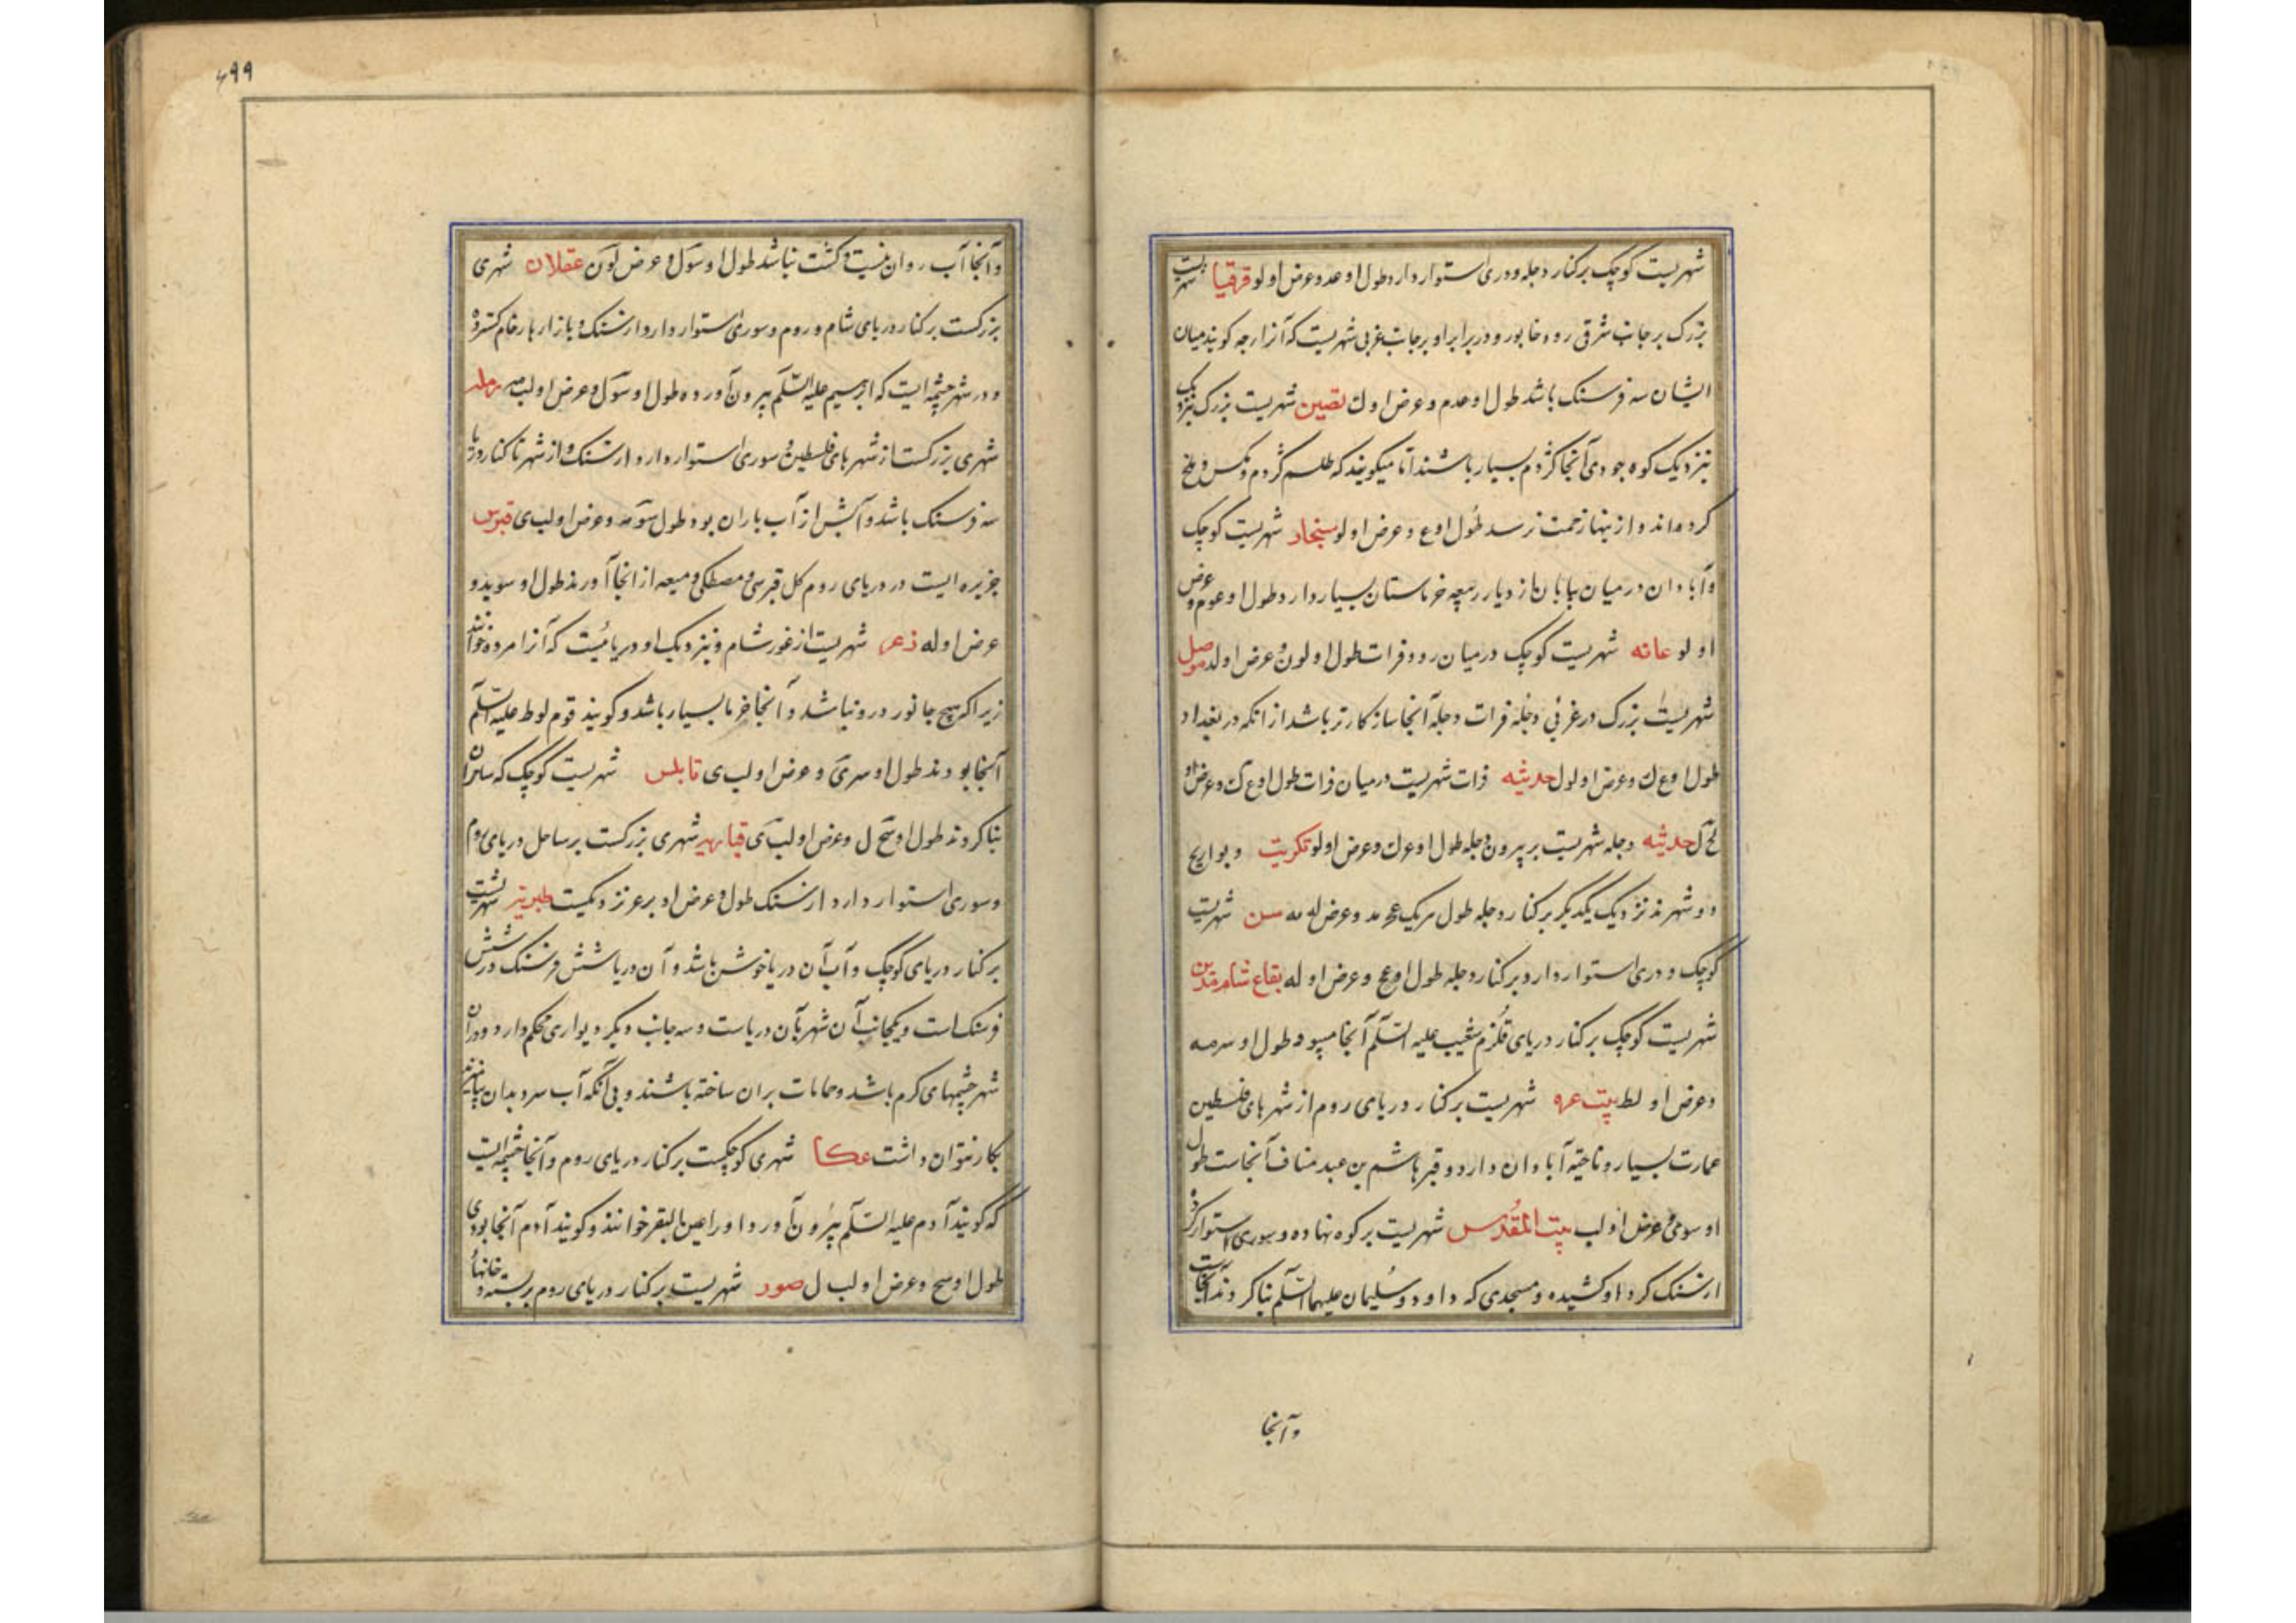 شهریست کوچک برکنار دجله و دری استوار دارد طول او عد و عرض او لو قرقیا شهریست
بزرک برجانب شرقی رود خابور و در برابر او برجانب غربی شهریست که آنرا رحبه کویند میان
ایشان سه فرسنک باشد طول او عدم و عرض او ك نصیبن شهریست بزرک بنزدیک
بنزدیک کوه جودی آنجا کژدم بسیار باشند اما میکویند که طلسم کژدم و مکس و ملخ
کرده‌اند و ازینها زحمت نرسد طول او ع و عرض او لو سنجار شهریست کوچک
وآبادان در میان بیابان از دیار ربیعه خرماستان بسیار دارد طول او عوم و عرض
او لو عانه شهریست کوچک درمیان رود فرات طول او لون و عرض او لد موصل
شهریست بزرک در غربی دجله فرات دجله آنجا سازکارتر باشد ازانکه در بغداد
طول او وع ك وعرض او لول حدیثه فرات شهریست درمیان فرات طول او ع ك و عرض او
لح ل حدیثه دجله شهریست بر بیرون دجله طول او عرك وعرض او لو تکریت وبواریح
دو شهرند نزدیک یکدیکر برکنار دجله طول هریک عح مد وعرض له مه سن شهریست
کوچک و دری استوار دارد برکنار دجله طول او عح وعرض او له بقاع شام مدین
شهریست کوچک برکنار دریای قلزم شعیب علیه السّلم آنجا میبود طول او سرمه
وعرض او لط بیت عزه شهریست برکنار دریای روم از شهرهای فلسطین
عمارت بسیار وناحیتی آبادان دارد و قبر هاشم بن عبد مناف آنجاست طول
او سومی و عرض او لب بیت المقُدس شهریست برکوه نهاده وسوری استوار کرده
ازسنک کرداو کشیده و مسجدی که داود و سلیمان علیهما السّلم بنا کردند آنجاست
وآنجا
۶۹۹
وآنجا آب روان نیست وکشت نباشد طول او سوك و عرض لون عقلان شهری
بزرکست برکنار دریای شام و روم وسوری استوار دارد ازسنک و بازارها رخام کسترده
ودر شهر چشمه‌ایست که ابرهیم علیه السّلم بیرون آورده طول او سوك و عرض او لب مه رمله
شهری بزرکست از شهرهای فلسطین و سوری استوار دارد ازسنک و از شهر تا کنار دریا
سه فرسنک باشد وآبش از آب باران بود طول سومه وعرض او لب ی قبرس
جزیره‌ایست در دریای روم کل قبرسی و مصطکی و میعه از آنجا آورند طول او سوید و
عرض او له زعر شهریست از غور شام و بنزدیک او دریائیست که آنرا مرده خوانند
زیراکه هیچ جانور درو نباشد و آنجا خرما بسیار باشد وکویند قوم لوط علیه السّلم
آنجا بودند طول او سری و عرض او لب ی قابلس شهریست کوچک که سامران
بنا کردند طول او سح ل وعرض او لب ی قیاریه شهری بزرکست برساحل دریای روم
وسوری استوار دارد ازسنک طول و عرض او بر عز نزدیکست طبریّه شهریست
برکنار دریای کوچک وآب آن دریا خوش باشد و آن دریا شش فرسنک در شش
فرسنک است ویکجانب آن شهر بآن دریاست وسه جانب دیکر دیواری محکم دارد ودران
شهر چشمهای کرم باشد وحمامات بران ساخته باشند وبی آنکه آب سرد بدان بیامیزند
بکار نتوان داشت عکا شهری کوچکست برکنار دریای روم وآنجا چشمه‌ایست
که کویند آدم علیه السّلم بیرون آورد اورا عین البقر خوانند وکویند آدم آنجا بودی
طول او سح وعرض او لب ل صور شهریست برکنار دریای روم بر بسته و خانها